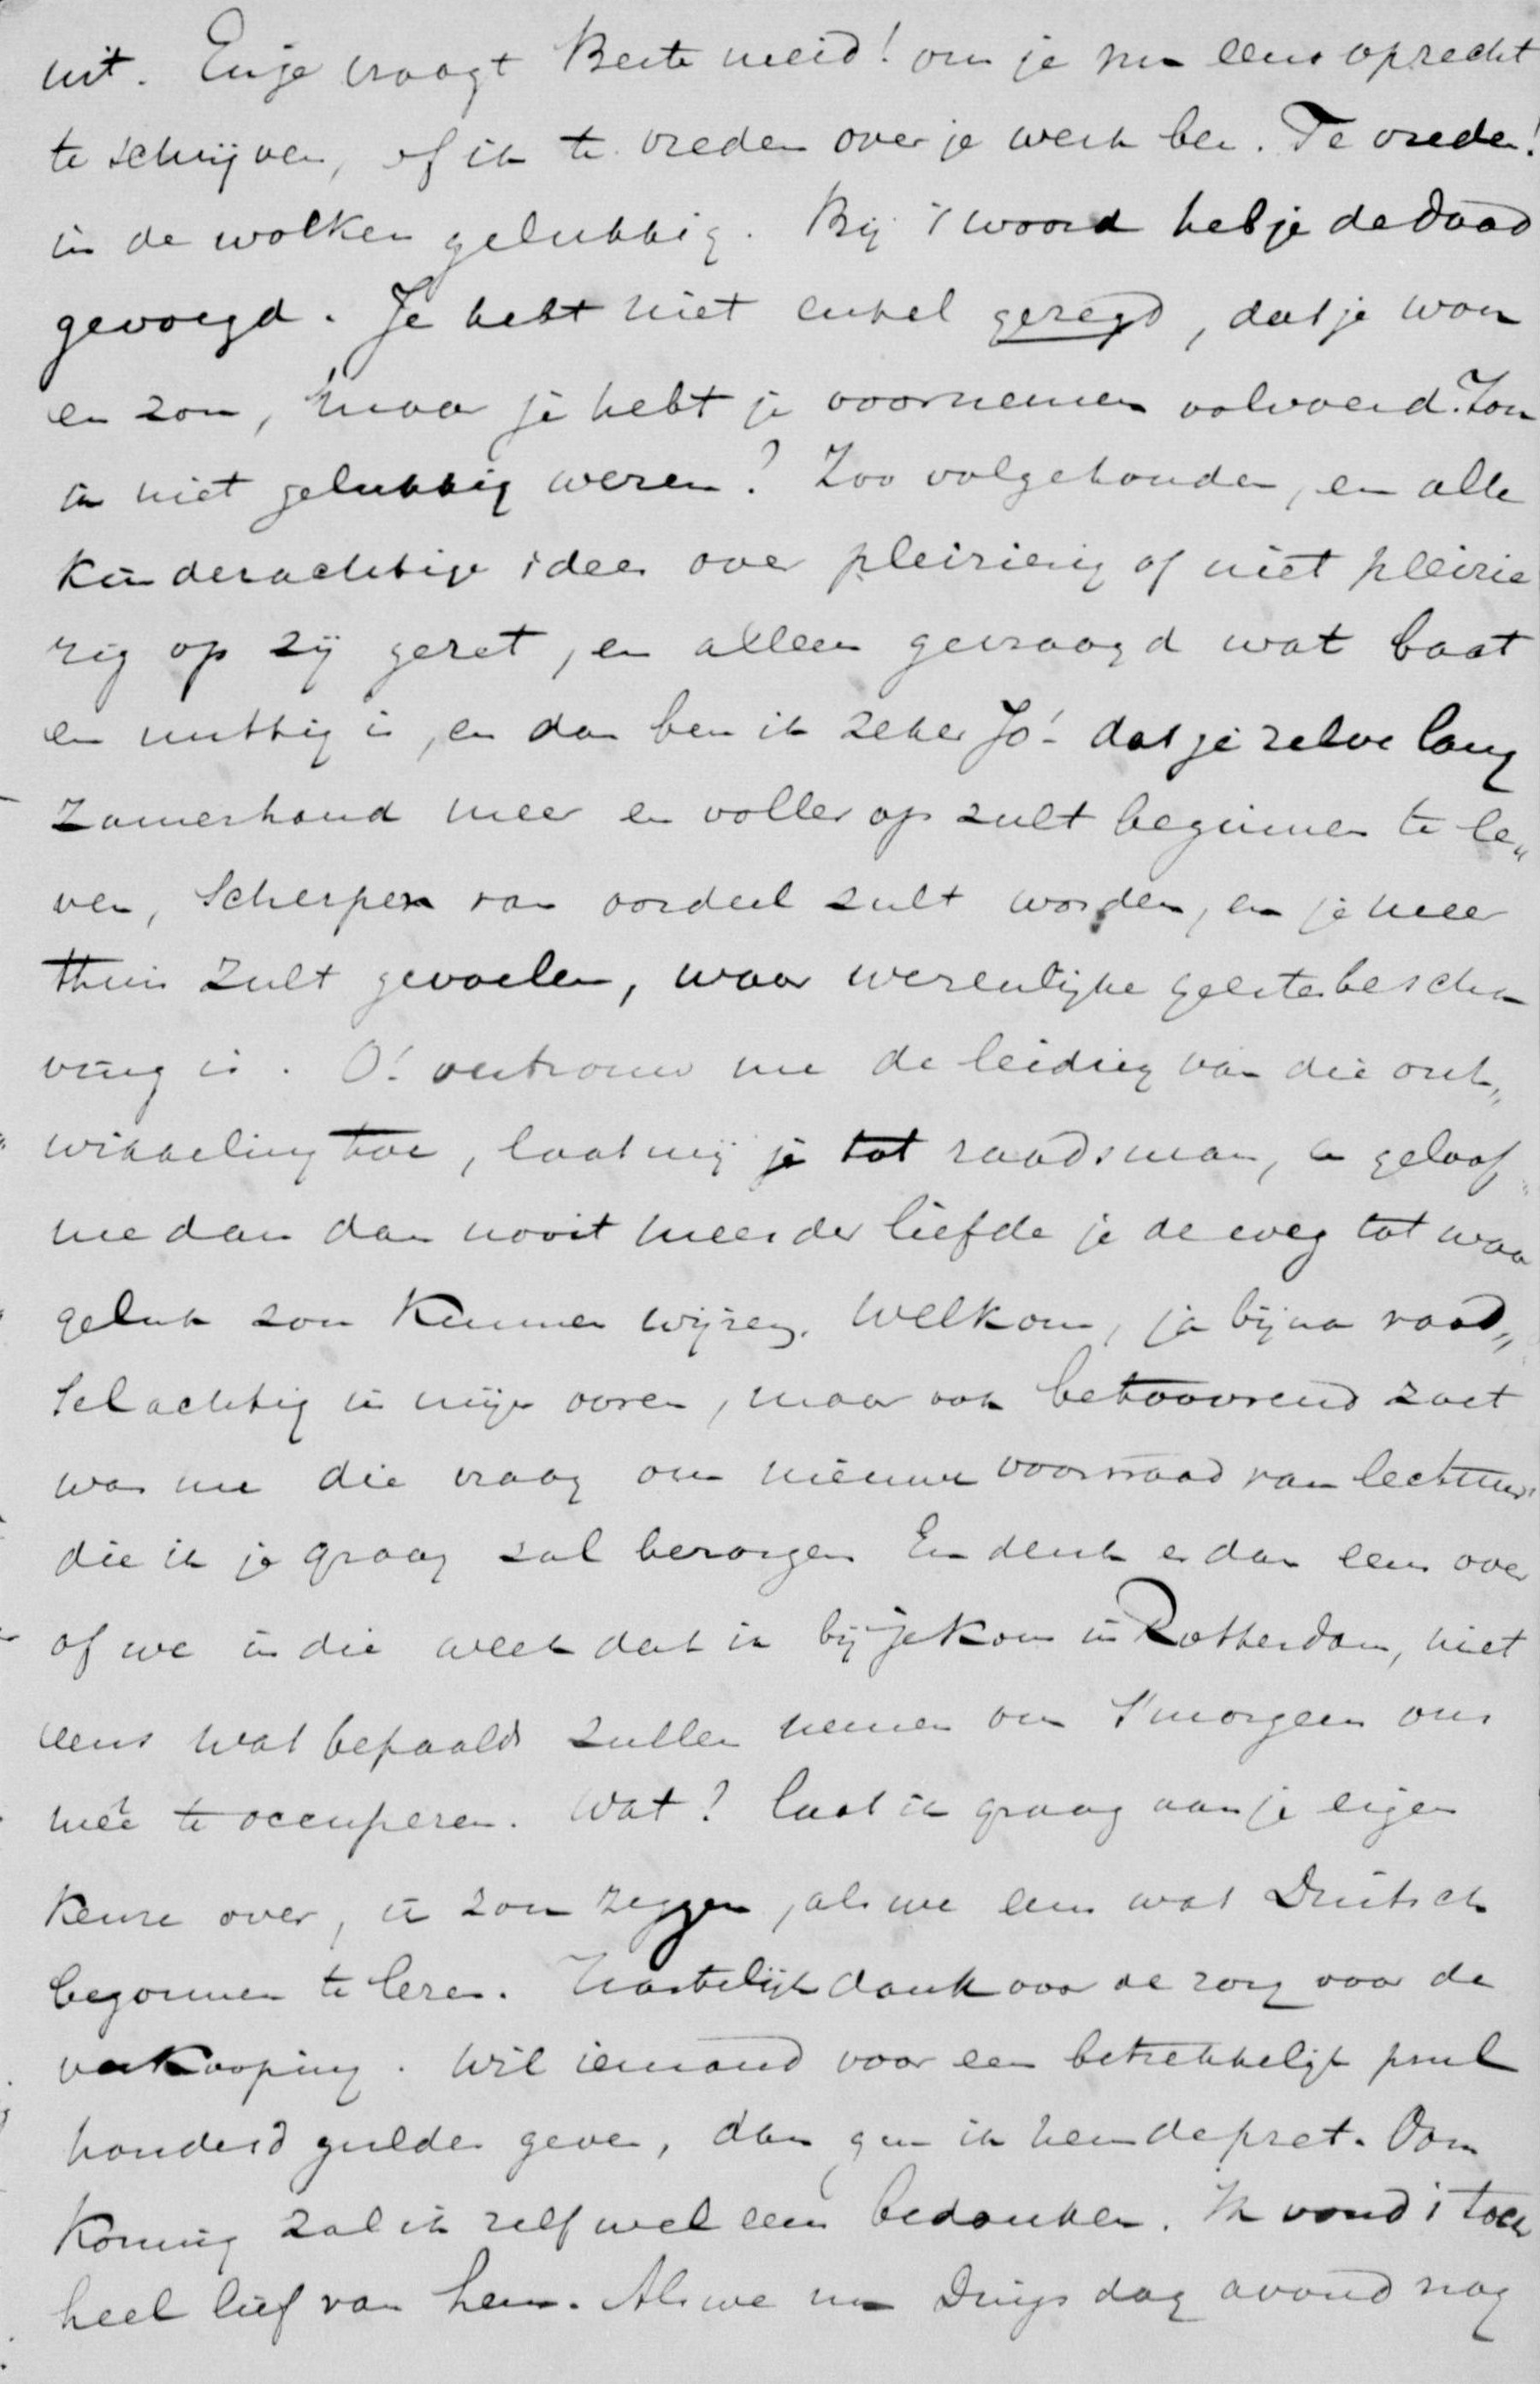 uit. En je vraagt Beste meid! om je nu eens oprecht
te schrijven, of ik te vreden over je werk ben. Te vreden!
in de wolken gelukkig. Bij 't woord heb je de daad
gevoegd. Je hebt niet enkel gezegd, dat je wou
en zou, maar je hebt je voornemen volvoerd. Zou
ik niet gelukkig wezen? Zoo volgehouden, en alle
kinderachtige ideen over pleizierig of niet pleizie
rig op zij gezet, en alleen gevraagd wat baat
en nuttig is, en dan ben ik zeker Jo! dat je zelve lang
zamerhand meer en voller op zult beginnen te le„
ven, scherper van oordeel zult worden, en je meer
thuis zult gevoelen, waar wezenlijke geestesbescha
ving is. O! vertrouw me de leiding van die ont„
wikkeling toe, laat mij je tot raadsman, en geloof
me dan dan nooit meerder liefde je de weg tot waar
geluk zou kunnen wijzen. Welkom, ja bijna raad„
selachtig in mijn ooren, maar ook betooverend zoet
was me die vraag om nieuwe voorraad van lectuur,
die ik je graag zal bezorgen En denk er dan eens over
of we in die week dat ik bij je kom in Rotterdam, niet
eens wat bepaalds zullen nemen om 's morgens ons
meê te occuperen. Wat? laat ik graag aan je eigen
keuze over, ik zou zeggen, als we eens wat Duitsch
begonnen te lezen. Hartelijk dank voor de zorg voor de
verkooping. Wil iemand voor een betrekkelijk prul
honderd gulden geven, dan gun ik hem de pret. Oom
Koning zal ik zelf wel eens bedanken. Ik vond 't toch
heel lief van hem. Als we nu Dingsdag avond nog